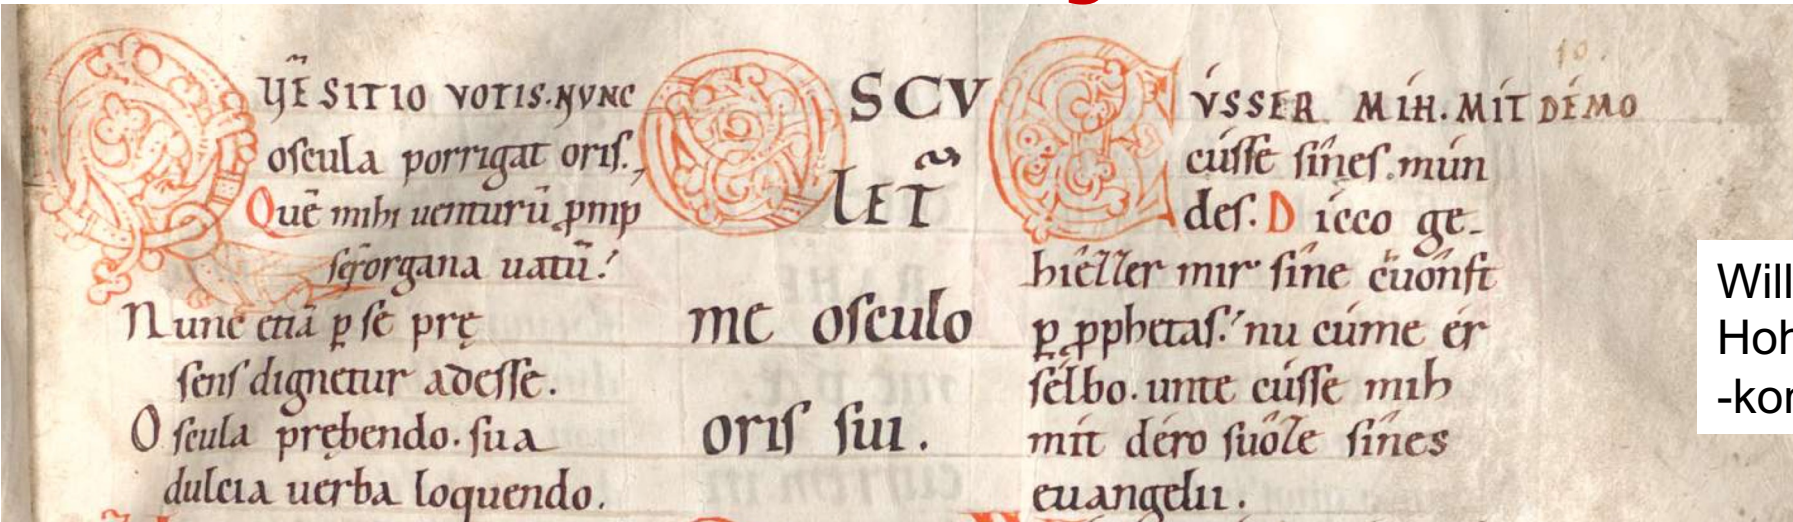 QVE᷑ SITIO VOTIS. NVNC
oſcula porrigat oriſ.
Quē mihi uenturū ꝓmp
ſeꝛ̄ organa uatū!
Nunc etiā ꝑ ſe prę
ſenſ dignetur adeſſe.
Oſcula prębendo. ſua
dulcia uerba loquendo.
OSCV
LET᷑
me oſculo
oriſ ſui.
10.
CVSSER MIH. MIT DEMO
cúſſe ſîneſ. mún
deſ. Dicco ge-
hiêzzer mir ſîne cuônſt
ꝑ ꝓphetaſ! nu cúme ér
ſélbo. unte cúſſe mih
mit déro ſuôze ſînes
euangelii.
Will
Hoh
-kor